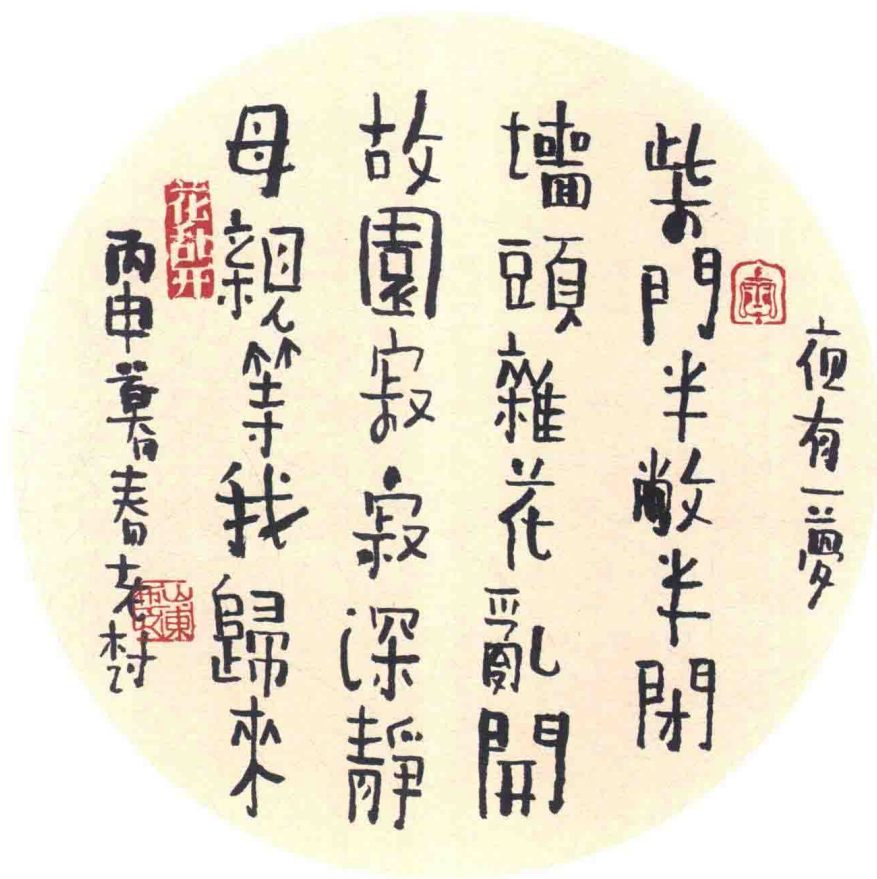 夜有一夢
柴門半敞半閉
墻頭雜花亂開
故園寂寂深靜
母親等我歸來
花乱开
丙申暮春老村